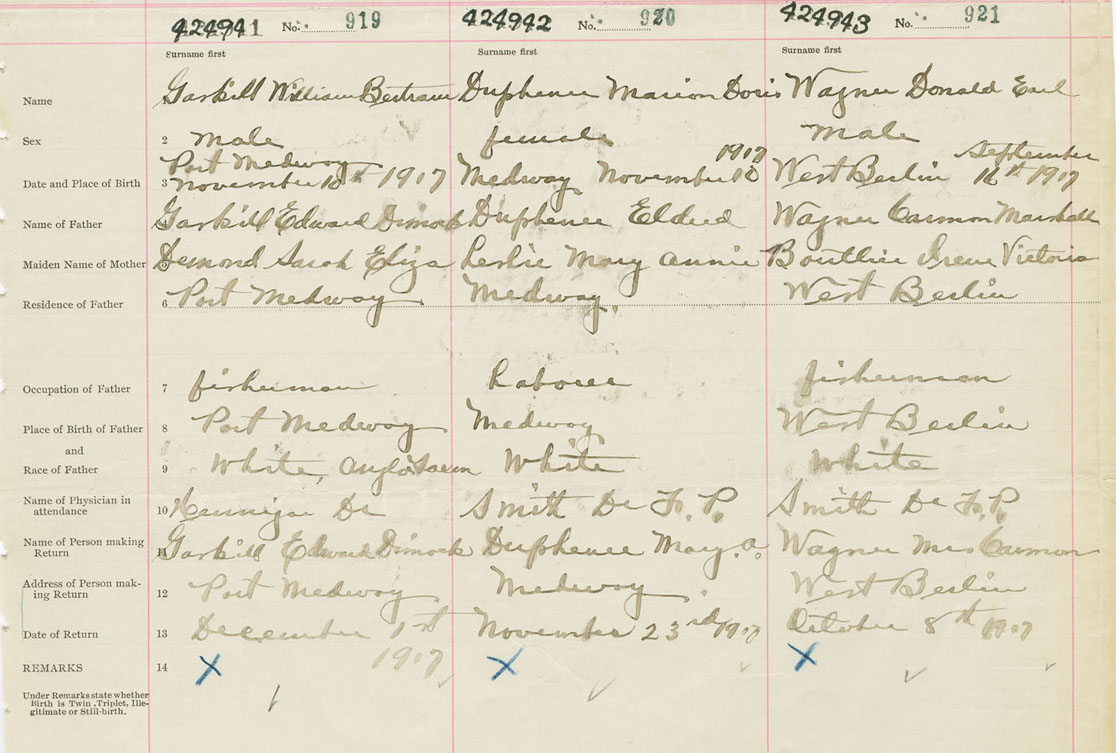 424941 No. 919 424942 No. 920 424943 No. 921
Surname first Surname first Surname first
Name Gaskill William Bertram Duphenee Marion Doris Wagner Donald Earl
Sex 2 male female male
Port Medway 1917 September
Date and Place of Birth 3 November 18th 1917 Medway November 18 West Berlin 16th 1917
Name of Father Gaskill Edward Dimock Duphenee Eldred Wagner Carmon Marshall
Maiden Name of Mother Demond Sarah Eliza Leslie Mary Annie Boutlier Irene Victoria
Residence of Father 6 Port Medway Medway. West Berlin
Occupation of Father 7 fisherman Laborer fisherman
Place of Birth of Father 8 Port Medway Medway West Berlin
and
Race of Father 9 White, Anglo Saxon White White
Name of Physician in
attendance 10 Hennigar Dr Smith Dr F. P. Smith Dr F. P.
Name of Person making
Return 11 Gaskill Edward Dimock Duphenee Mary. A. Wagner Mrs Carmon
Address of Person mak-
ing Return 12 Port Medway Medway. West Berlin
Date of Return 13 December 1st November 23rd 1917 October 8th 1917
1917
REMARKS 14 X X X
Under Remarks state whether
Birth is Twin, Triplet, Ille-
gitimate or Still-birth.